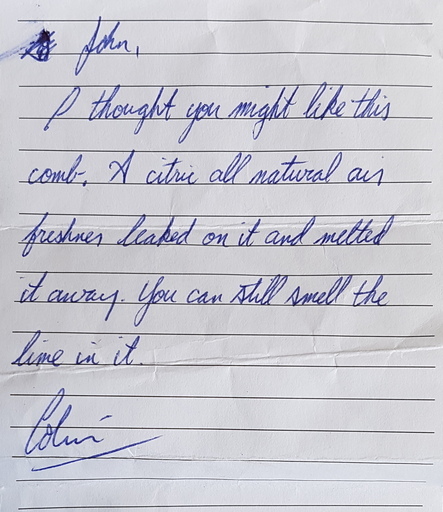 John,
I thought you might like this
comb. A citric all natural air
freshner leaked on it and melted
it away. You can still smell the
lime in it.
Colin